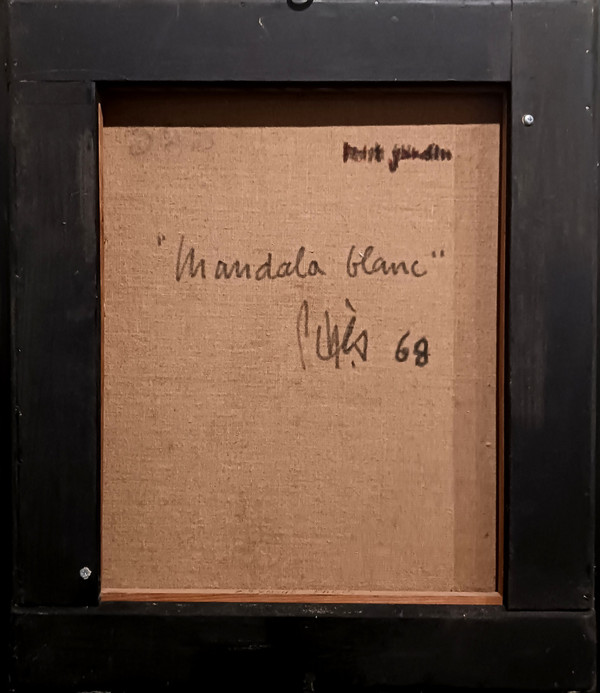 petit jardin
"Mandala blanc"
68